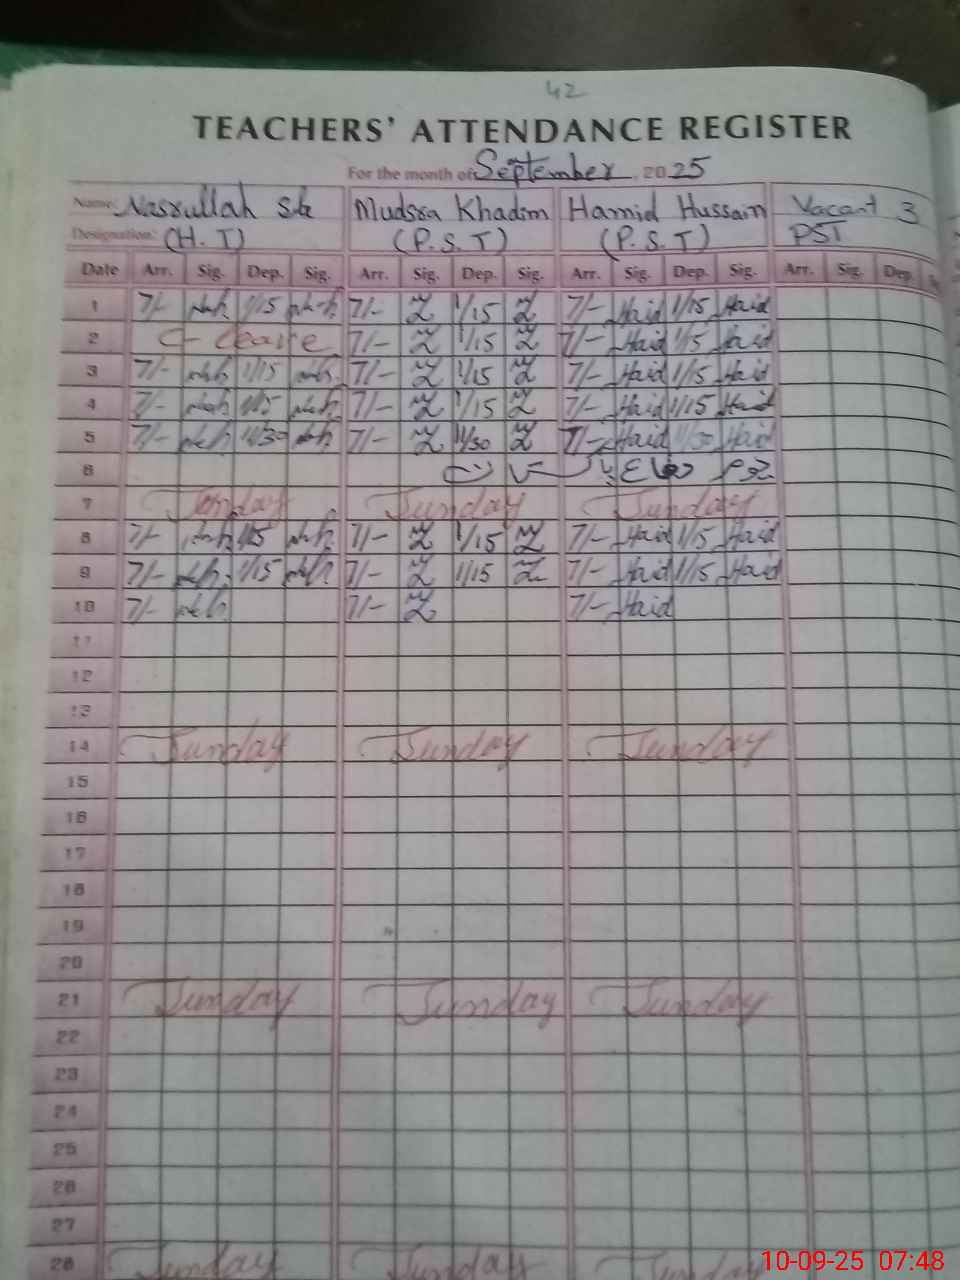 42
TEACHERS' ATTENDANCE REGISTER
For the month of September, 2025
Name: Nasrullah Mudsra Khadim Hamid Hussain Vacant 3
Designation: (H.T) (P.S.T) (P.S.T) PST
Date Arr. Sig. Dep. Sig. Arr. Sig. Dep. Sig. Arr. Sig. Dep. Sig. Arr. Sig. Dep.
1 7/- 1/15 7/- 1/15 7/- Haid 1/15 Haid
2 C- Leave 7/- 1/15 7/- Haid 1/15 Haid
3 7/- 1/15 7/- 1/15 7/- Haid 1/15 Haid
4 7/- 1/15 7/- 1/15 7/- Haid 1/15 Haid
5 7/- 11/30 7/- 11/30 7/- Haid 11/30 Haid
6
7 Sunday Sunday Sunday
8 7/- 1/15 7/- 1/15 7/- Haid 1/15 Haid
9 7/- 1/15 7/- 1/15 7/- Haid 1/15 Haid
10 7/- 7/- 7/- Haid
11
12
13
14 Sunday Sunday Sunday
15
16
17
18
19
20
21 Sunday Sunday Sunday
22
23
24
25
26
27
28 Sunday Sunday Sunday
10-09-25 07:48